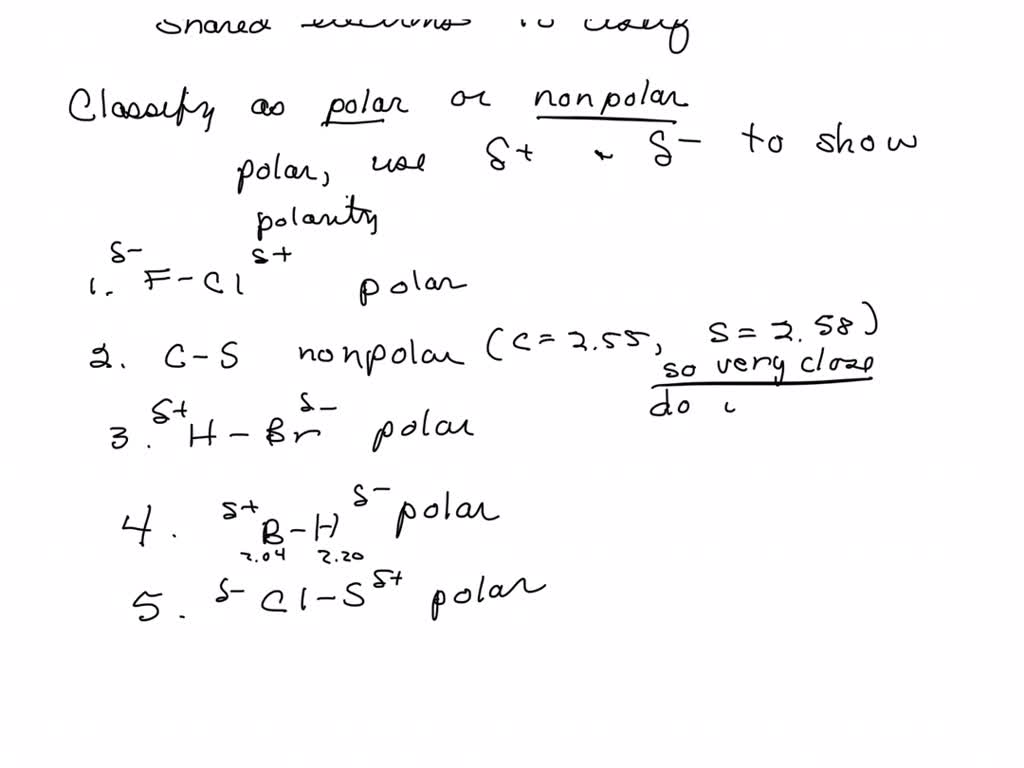 shared
Classify as polar or nonpolar
polar, use δ+ δ- to show
polarity
1. δ- F-Cl δ+ polar
2. C-S nonpolar (C=2.55, S=2.58)
so very close
do
3. δ+ H-Br δ- polar
4. δ+ B-H δ- polar
2.04 2.20
5. δ- Cl-S δ+ polar